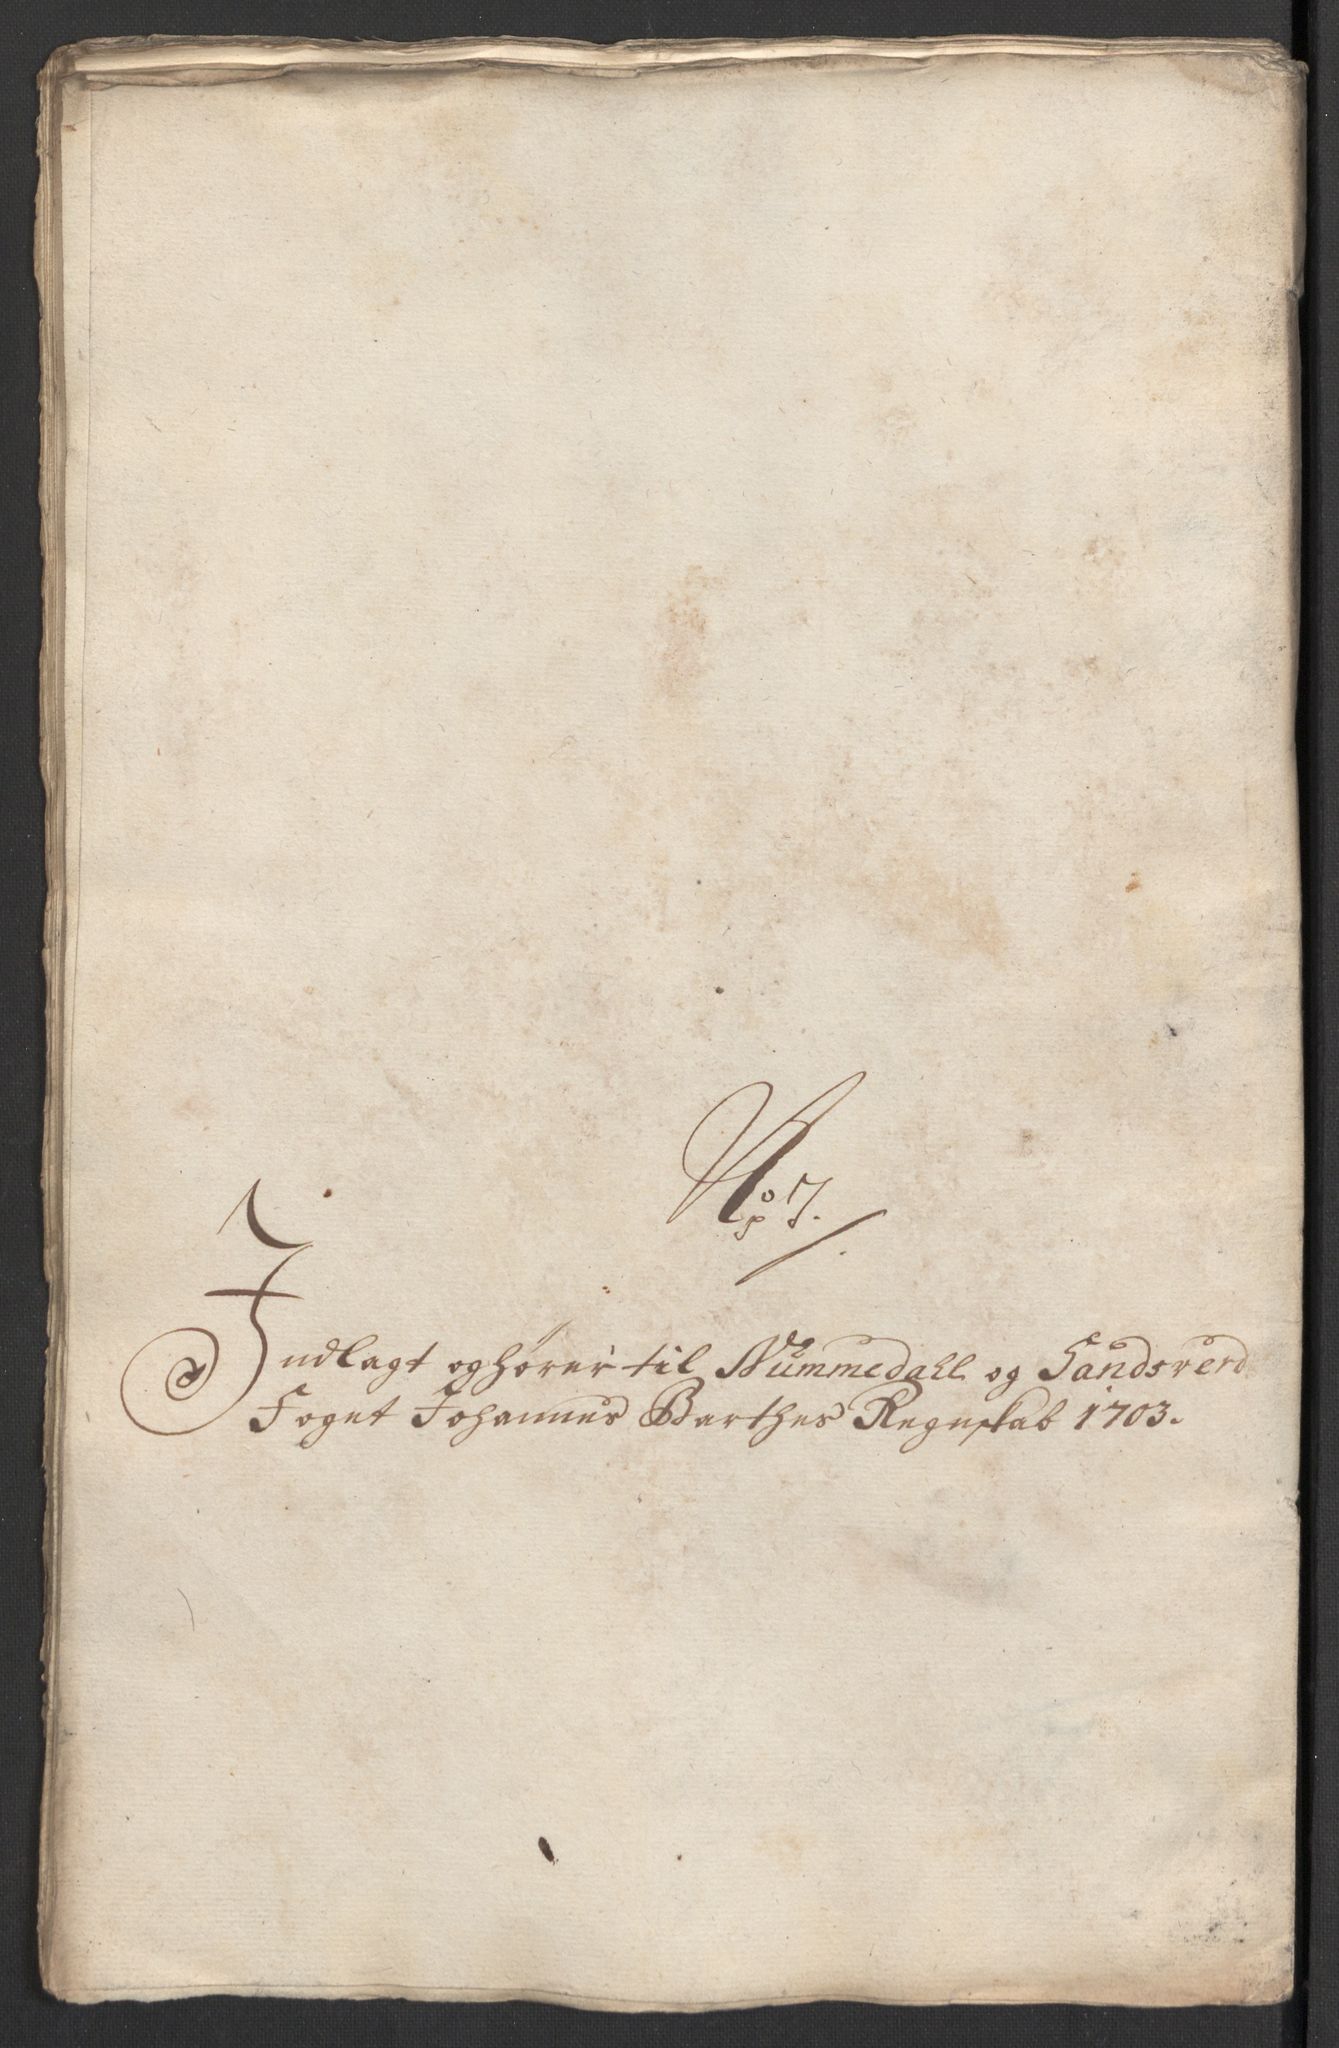 No 7.
Indlagt og hører til Nummedahl og Sandsverd
Foget Johannes Barthes Regnskab 1703.